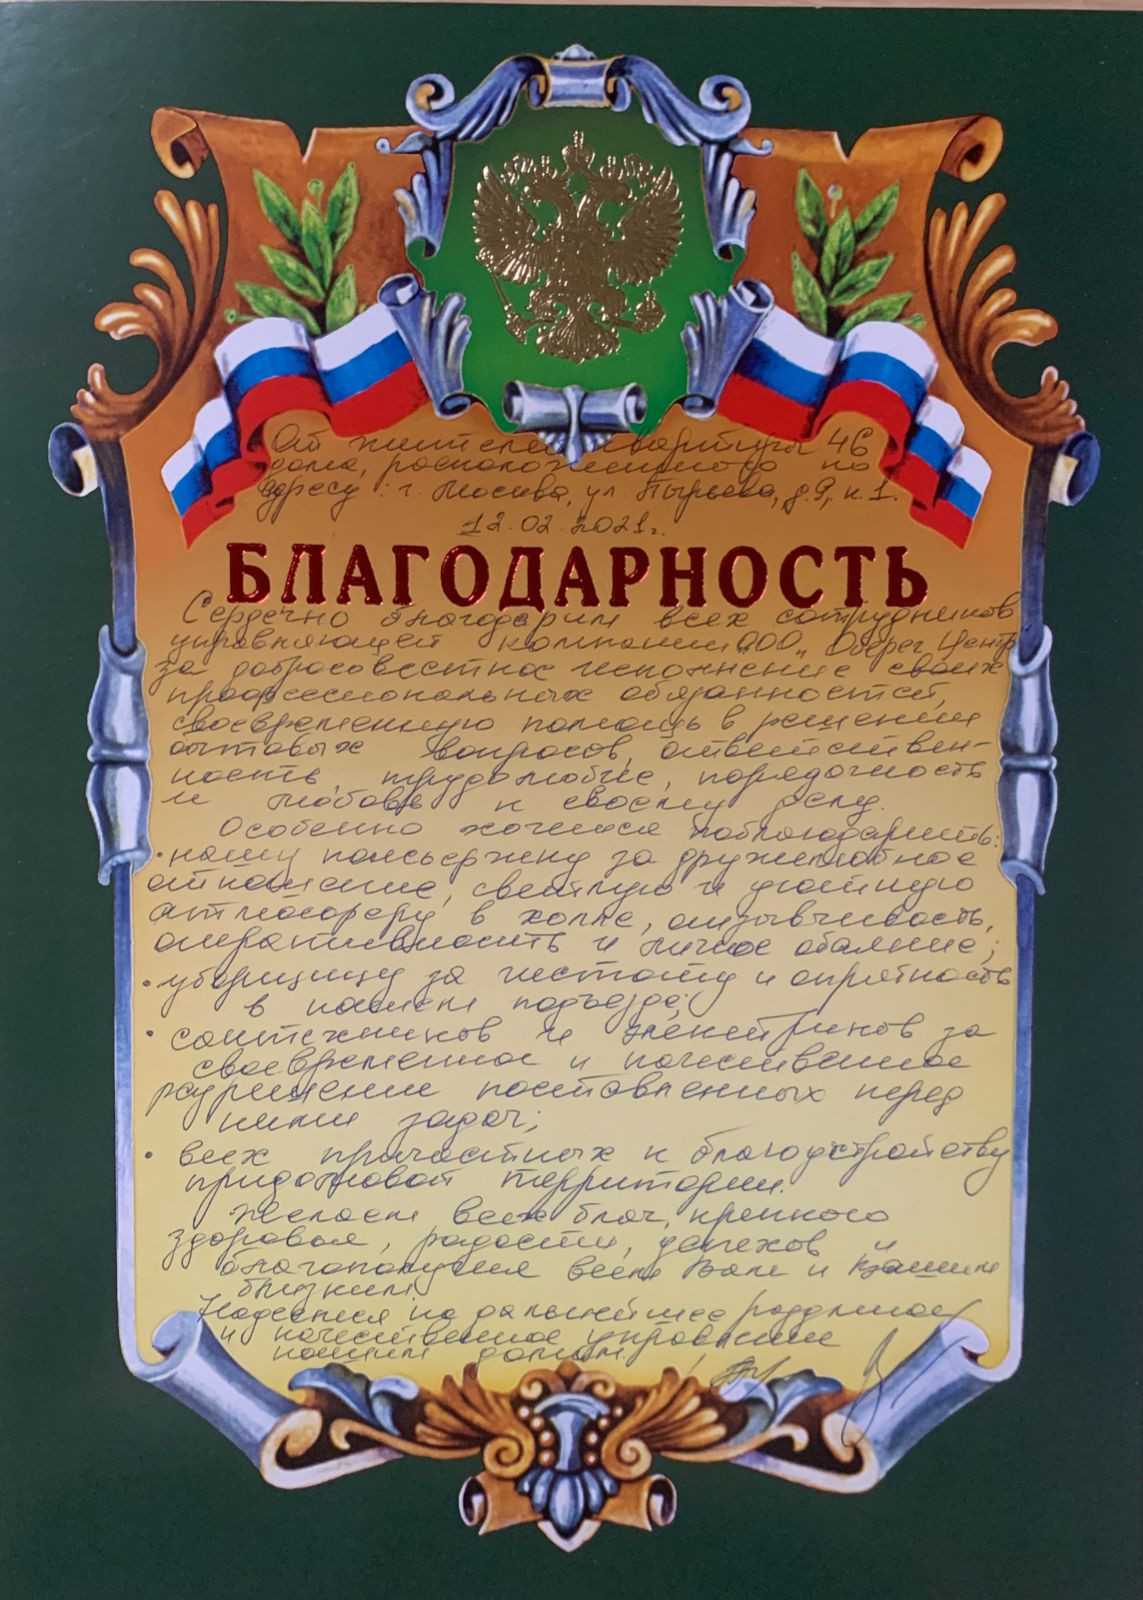 От жителей квартиры 46
дома, расположенного по
адресу: г. Москва, ул. Пырьева, д. 9, к. 1.
12.02.2021г.
БЛАГОДАРНОСТЬ
Сердечно благодарим всех сотрудников
управляющей компании ООО „Оберег Центр"
за добросовестное исполнение своих
профессиональных обязанностей,
своевременную помощь в решении
бытовых вопросов, ответствен-
ность, трудолюбие, порядочность
и любовь к своему делу.
Особенно хочется поблагодарить:
• нашу консьержку за дружелюбное
отношение, светлую и уютную
атмосферу в холле, отзывчивость,
оперативность и личное обаяние;
• уборщицу за чистоту и опрятность
в нашем подъезде;
• сантехников и электриков за
своевременное и качественное
разрешение поставленных перед
ними задач;
• всех причастных к благоустройству
придомовой территории.
Желаем всех благ, крепкого
здоровья, радости, успехов и
благополучия всем Вам и Вашим
близким!
Надеемся на дальнейшее разумное
и качественное управление
нашим домом!